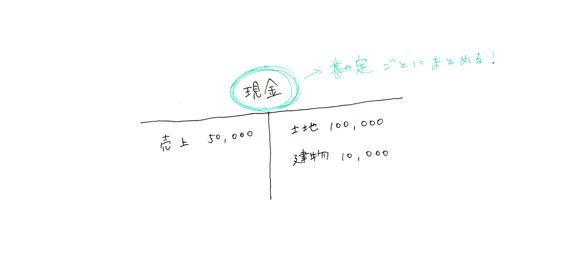 → 勘定ごとにまとめる!
現金
売上 50,000
土地 100,000
建物 10,000